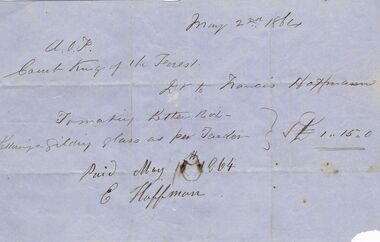 May 2nd 1864
A.O.F.
Court King of the Forest
Dr to Francis Hoffmann
To making
gilding glass as per Tender £ 1 - 15 - 0
Paid May 64
E Hoffman